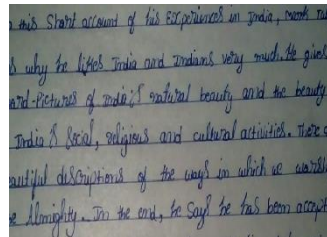 this Short account of his Experiences in India, Mark
why he likes India and Indians very much. He gives
ard-Pictures of India's natural beauty and the beauty
India's Social, religious and cultural activities. There
autiful descriptions of the ways in which we worsh
e Almighty. In the end, he says he has been accept